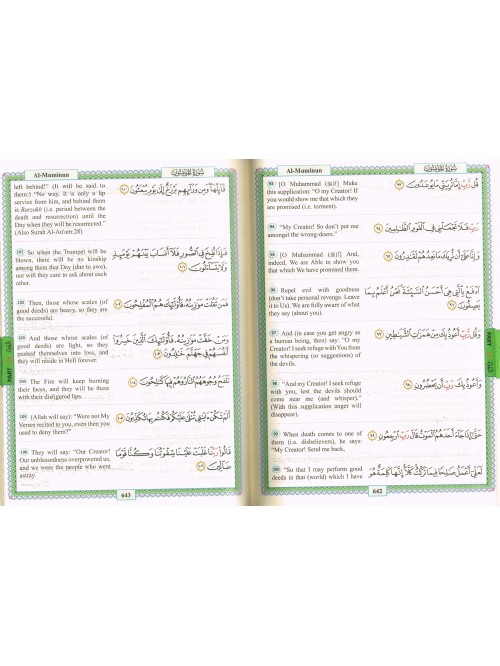 Al-Muminun
سُورَةُ المُؤْمِنُون
93 [O Muhammad (ﷺ)!] Make
this supplication: "O my Creator! If
you would show me that which they
are promised (i.e. torment).
قُل رَّبِّ إِمَّا تُرِيَنِّي مَا يُوعَدُونَ ٩٣
94 "My Creator! So don't put me
amongst the wrong-doers."
رَبِّ فَلَا تَجْعَلْنِي فِي الْقَوْمِ الظَّالِمِينَ ٩٤
95 [O Muhammad (ﷺ)!] And,
indeed, We are Able to show you
that which We have promised them.
وَإِنَّا عَلَىٰ أَن نُّرِيَكَ مَا نَعِدُهُمْ لَقَادِرُونَ ٩٥
96 Repel evil with goodness
(don't take personal revenge. Leave
it to Us). We are fully aware of what
they say (about you).
ادْفَعْ بِالَّتِي هِيَ أَحْسَنُ السَّيِّئَةَ نَحْنُ أَعْلَمُ بِمَا
يَصِفُونَ ٩٦
97 And (in case you get angry as
a human being, then) say: "O my
Creator! I seek refuge with You from
the whispering (or suggestions) of
the devils.
وَقُل رَّبِّ أَعُوذُ بِكَ مِنْ هَمَزَاتِ الشَّيَاطِينِ ٩٧
98 "And my Creator! I seek refuge
with you, lest the devils should
come near me (and whisper)."
(With this supplication anger will
disappear).
وَأَعُوذُ بِكَ رَبِّ أَن يَحْضُرُونِ ٩٨
99 When death comes to one of
them (i.e. disbelievers), he says:
"My Creator! Send me back,
حَتَّىٰ إِذَا جَاءَ أَحَدَهُمُ الْمَوْتُ قَالَ رَبِّ ارْجِعُونِ ٩٩
100 "So that I may perform good
deeds in that (world) which I have
لَعَلِّي أَعْمَلُ صَالِحًا فِيمَا تَرَكْتُ كَلَّا إِنَّهَا كَلِمَةٌ هُوَ
642
PART
Al-Muminun
سُورَةُ المُؤْمِنُون
left behind!" (It will be said to
them:) "No way. It is only a lip
service from him, and behind them
is Barzakh (i.e. period between the
death and resurrection) until the
Day when they will be resurrected."
(Also Surah Al-An'am:28)
قَائِلُهَا وَمِن وَرَائِهِم بَرْزَخٌ إِلَىٰ يَوْمِ يُبْعَثُونَ
١٠٠
101 So when the Trumpet will be
blown, there will be no kinship
among them that Day (due to awe),
nor will they care to ask about each
other.
فَإِذَا نُفِخَ فِي الصُّورِ فَلَا أَنسَابَ بَيْنَهُمْ يَوْمَئِذٍ
وَلَا يَتَسَاءَلُونَ ١٠١
102 Then, those whose scales (of
good deeds) are heavy, so they are
the successful.
فَمَن ثَقُلَتْ مَوَازِينُهُ فَأُولَٰئِكَ هُمُ الْمُفْلِحُونَ ١٠٢
103 And those whose scales (of
good deeds) are light, so they
pushed themselves into loss, and
they will reside in Hell forever.
وَمَنْ خَفَّتْ مَوَازِينُهُ فَأُولَٰئِكَ الَّذِينَ خَسِرُوا
أَنفُسَهُمْ فِي جَهَنَّمَ خَالِدُونَ ١٠٣
104 The Fire will keep burning
their faces, and they will be there
with their disfigured lips.
تَلْفَحُ وُجُوهَهُمُ النَّارُ وَهُمْ فِيهَا كَالِحُونَ ١٠٤
105 (Allah will say): "Were not My
Verses recited to you, even then you
used to deny them?"
أَلَمْ تَكُنْ آيَاتِي تُتْلَىٰ عَلَيْكُمْ فَكُنتُم بِهَا تُكَذِّبُونَ ١٠٥
106 They will say: "Our Creator!
Our unblessedness overpowered us,
and we were the people who went
astray.
قَالُوا رَبَّنَا غَلَبَتْ عَلَيْنَا شِقْوَتُنَا وَكُنَّا قَوْمًا
ضَالِّينَ ١٠٦
643
PART